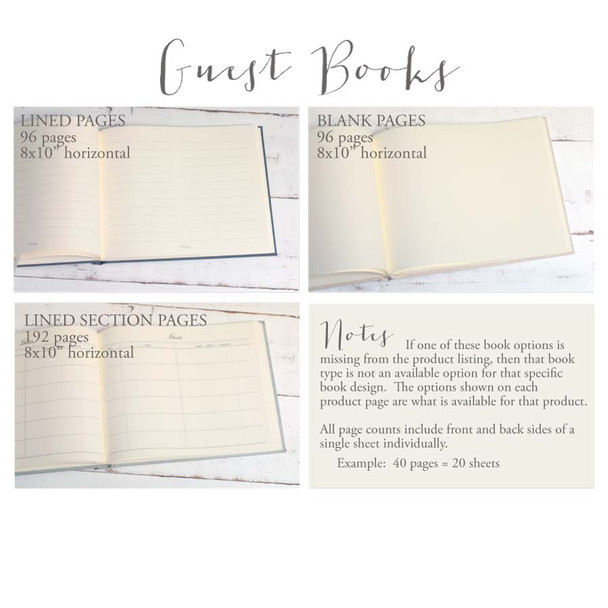 Guest Books
LINED PAGES
96 pages
8x10” horizontal
BLANK PAGES
96 pages
8x10” horizontal
LINED SECTION PAGES
192 pages
8x10” horizontal
Guests
Notes If one of these book options is
missing from the product listing, then that book
type is not an available option for that specific
book design. The options shown on each
product page are what is available for that product.
All page counts include front and back sides of a
single sheet individually.
Example: 40 pages = 20 sheets